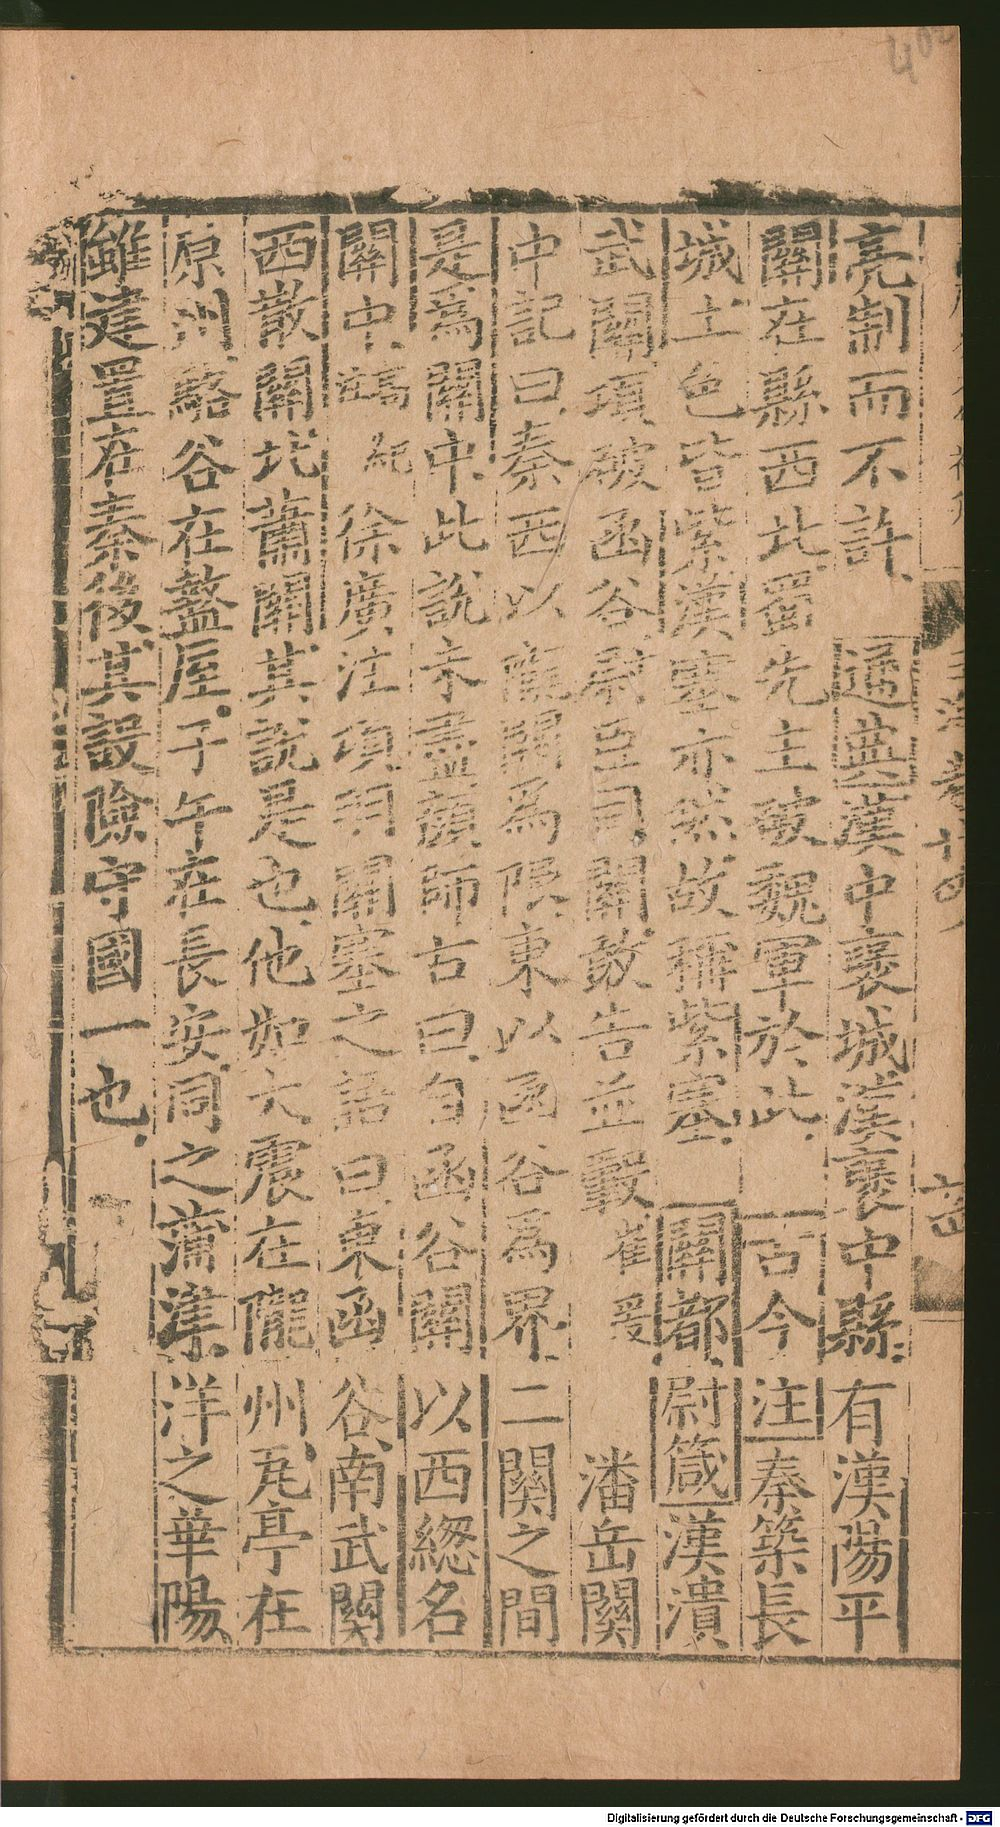 亮制而不許通典漢中褒城漢褒中縣有漢陽平
關在縣西北蜀先主破魏軍於此古今注秦築長
城土色皆紫漢塞亦然故稱紫塞關都尉箴漢潰
武關項破函谷尉臣司關敢告並轂崔爰潘岳關
中記曰秦西以隴關為限東以函谷為界二關之間
是為關中此說未盡顏師古曰自函谷關以西緫名
關中高紀徐廣注項羽關塞之語曰東函谷南武關
西散關北蕭關其說是也他如大震在隴州瓦亭在
原州駱谷在盩厔子午在長安同之蒲津洋之華陽
雖建置在秦後其設險守國一也
402
Digitalisierung gefördert durch die Deutsche Forschungsgemeinschaft - DFG